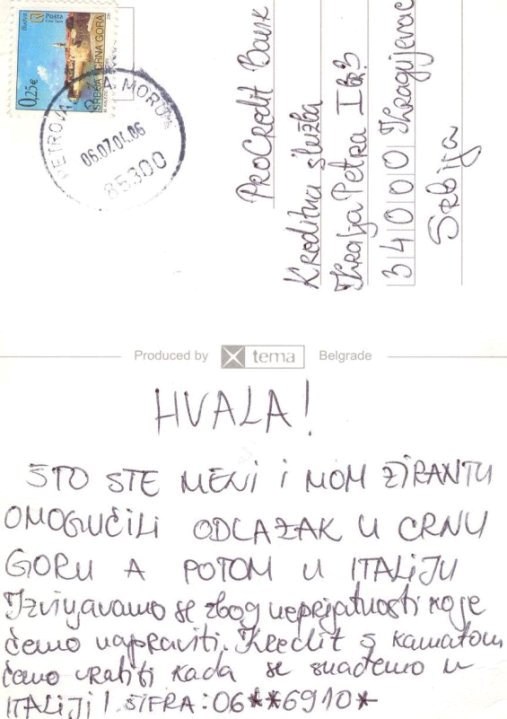 Pošta
SRBIJA I CRNA GORA
0,25€
PETROVAC NA MORU
06.07.04.06
85300
ProCredit Bank
Kreditna služba
Kralja Petra I B3
34000 Kragujevac
Srbija
Produced by tema Belgrade
HVALA!
ŠTO STE MENI I MOM ŽIRANTU
OMOGUĆILI ODLAZAK U CRNU
GORU A POTOM U ITALIJU
Izvinjavamo se zbog neprijatnosti koje
ćemo napraviti. Kredit s kamatom
ćemo vratiti kada se snađemo u
ITALIJI! ŠIFRA: 06**6910*